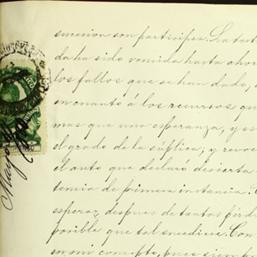 sucesion son participes. La tert
da ha sido vencida hasta ahor
los fallos que se han dado,
en cuanto á los recursos que
mas que una esperanza, y es
el grado de la súplica; y revo
el auto que declaró desierta
tencia de primera instancia:
esperar, despues de tantos
posible que tal sucediera. Con